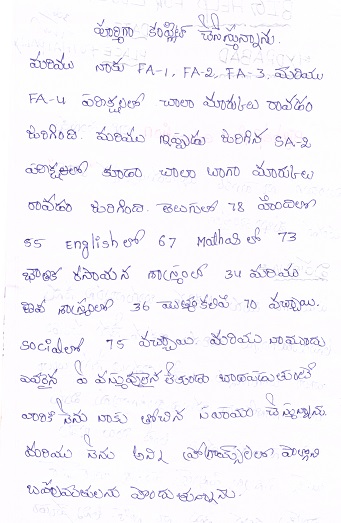 పూర్తిగా కంప్లీట్ చేస్తున్నాను.
మరియు నాకు FA-1, FA-2, FA-3, మరియు
FA-4 పరీక్షలలో చాలా మార్కులు రావడం
జరిగింది. మరియు ఇప్పుడు జరిగిన SA-2
పరీక్షలలో కూడా చాలా బాగా మార్కులు
రావడం జరిగింది. తెలుగులో 78 హిందీలో
55 English లో 67 Maths లో 73
భౌతిక రసాయన శాస్త్రంలో 34 మరియు
జీవ శాస్త్రంలో 36 మొత్తం కలిపి 70 వచ్చాయి.
social లో 75 వచ్చాయి. మరియు నా ముందు
ఎవరైన ఏ వస్తువులైన లేకుండా బాధపడుతుంటే
వారికి నేను నాకు తోచిన సహాయం చేస్తున్నాను.
మరియు నేను అన్ని ప్రోగ్రామ్స్‌లలో పాల్గొని
బహుమతులను పొందుతున్నాను.